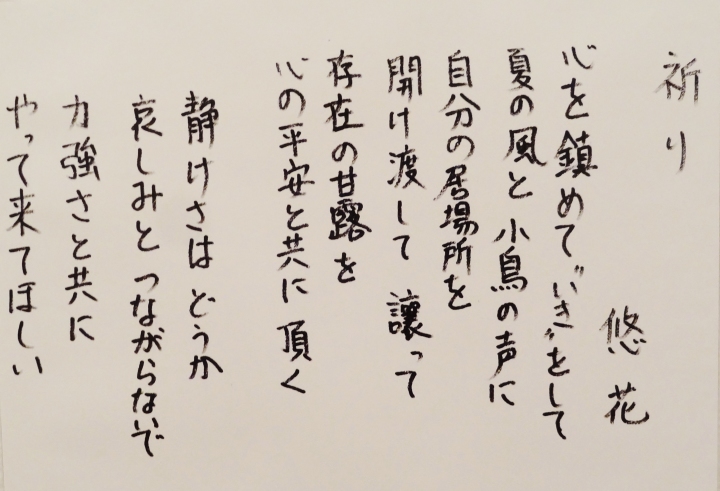 祈り
悠花
心を鎮めて〝いき〟をして
夏の風と小鳥の声に
自分の居場所を
開け渡して 譲って
存在の甘露を
心の平安と共に頂く
静けさは どうか
哀しみと つながらないで
力強さと共に
やって来てほしい